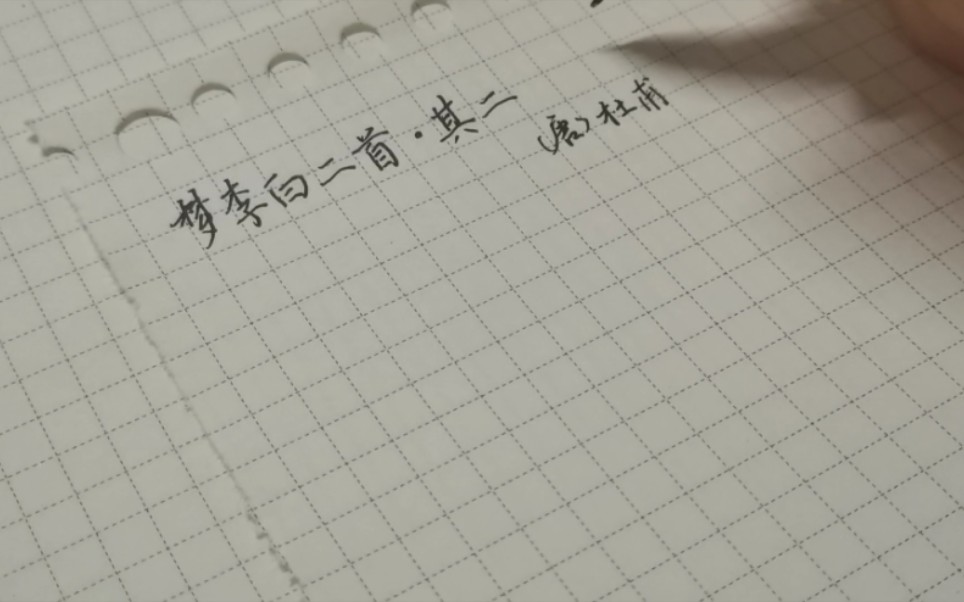 梦李白二首·其二 (唐)杜甫